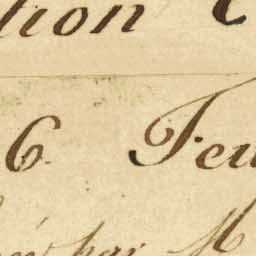 tion C
6. Feu
par M